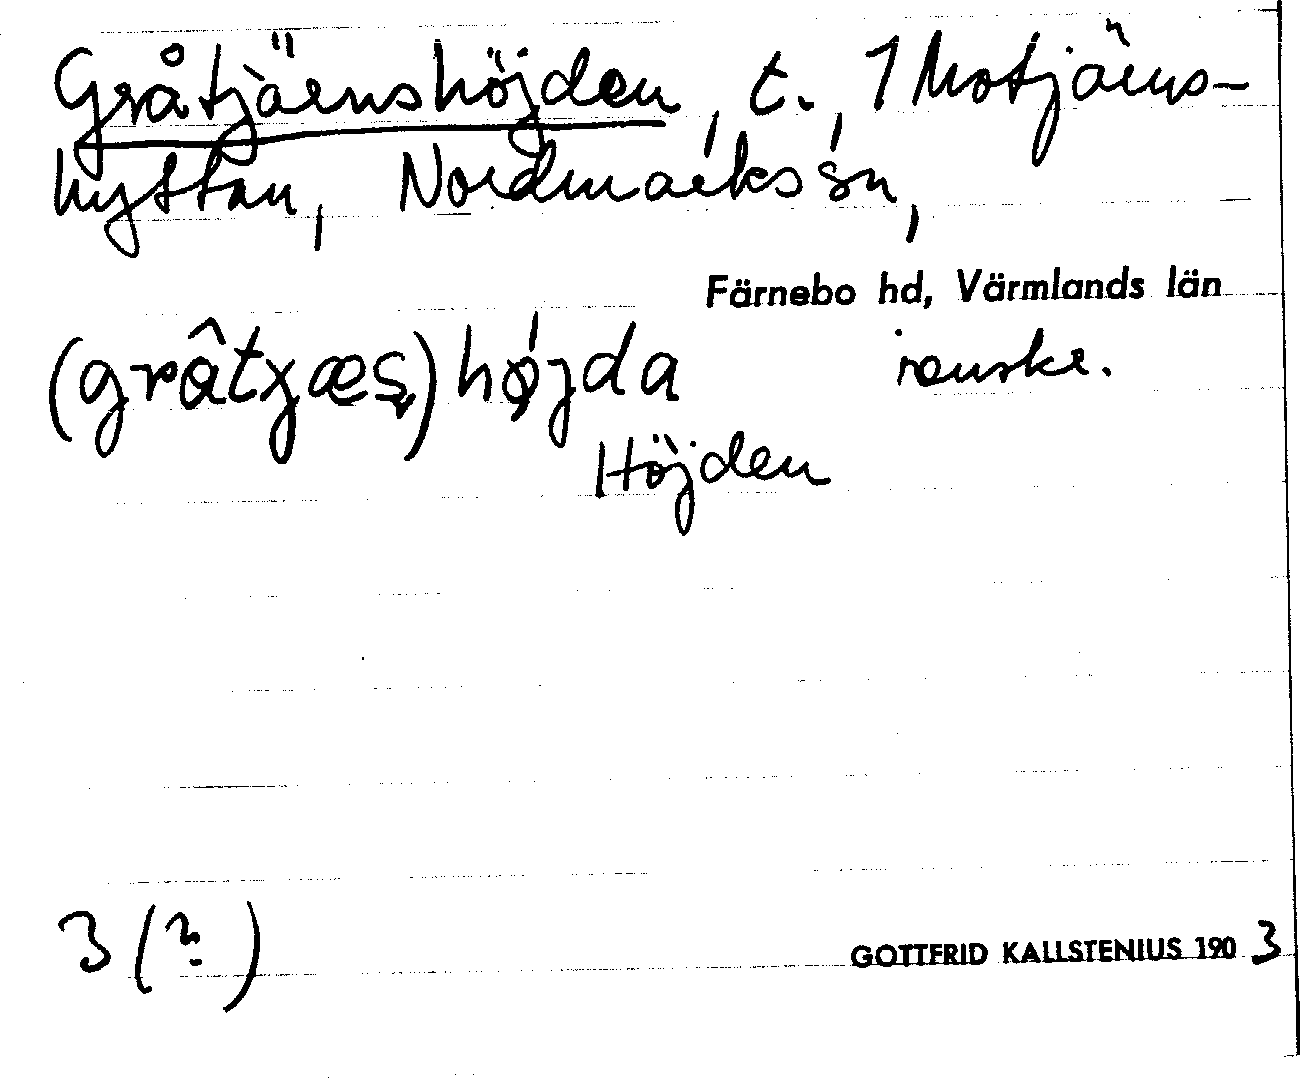 Gråtjärnshöjden, t. 1 Motjärns-
hyttan, Nordmarks sn,
Färnebo hd, Värmlands län
(grâtȷæș) højda
Höjden
3 (?)
GOTTFRID KALLSTENIUS 1903